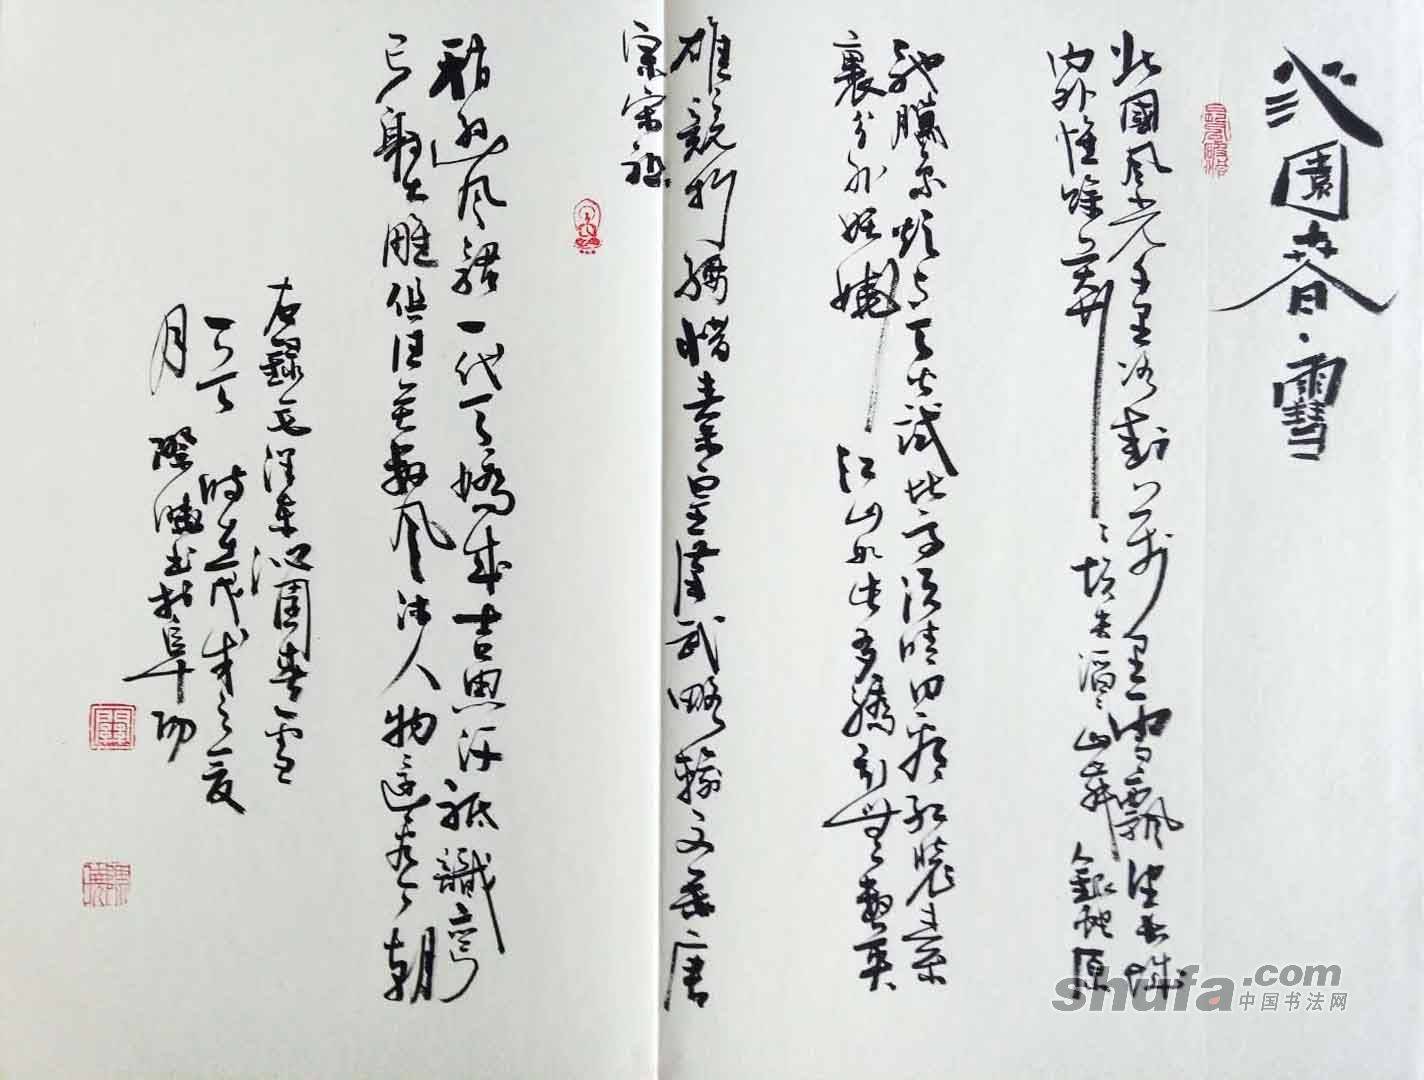 沁園春·雪
北國風光千里冰封萬里雪飄望長城
內外惟餘莽々頓失滔々山舞銀蛇原
馳臘象欲與天公試比高須晴日看紅裝素
裹分外妖嬈江山如此多嬌引無數英
雄競折腰惜秦皇漢武略輸文采唐
宗宋祖
稍遜風騷一代天驕成吉思汗祗識彎
弓射大雕俱往矣數風流人物還看今朝
右錄毛澤東沁園春雪
時在戊戌之夏
月 書於阜
shufa.com
中国书法网